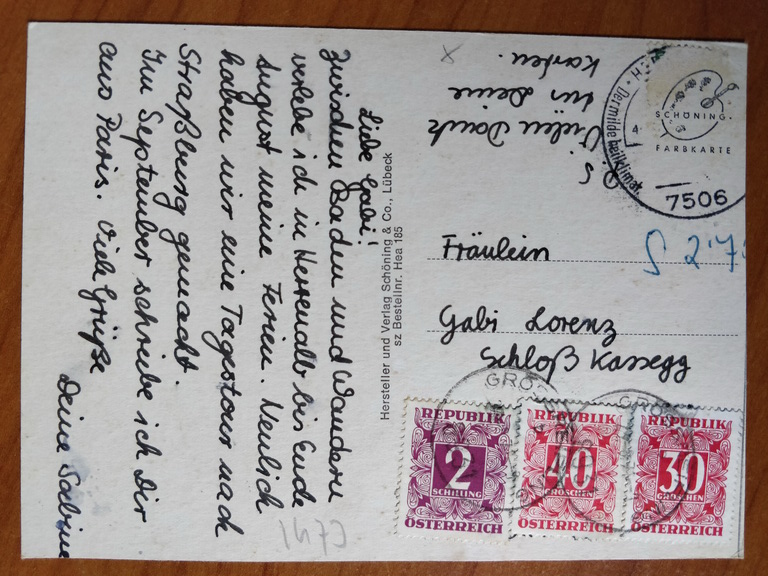 Liebe Gabi!
Zwischen Baden und Wandern
verlebe ich in Herrenalb bis Ende
August meine Ferien. Neulich
haben wir eine Tagstour nach
Straßburg gemacht.
Im September schreibe ich Dir
aus Paris. Viele Grüße
Deine Sabine
PS
Vielen Dank
für Deine
Karten.
Hersteller und Verlag Schöning & Co., Lübeck
sz Bestellnr. Hea 185
SCHÖNING
FARBKARTE
Der milde heilklimat.
7506
Fräulein
Gabi Lorenz
Schloß Kassegg
REPUBLIK
2
SCHILLING
ÖSTERREICH
REPUBLIK
40
GROSCHEN
ÖSTERREICH
REPUBLIK
30
GROSCHEN
ÖSTERREICH